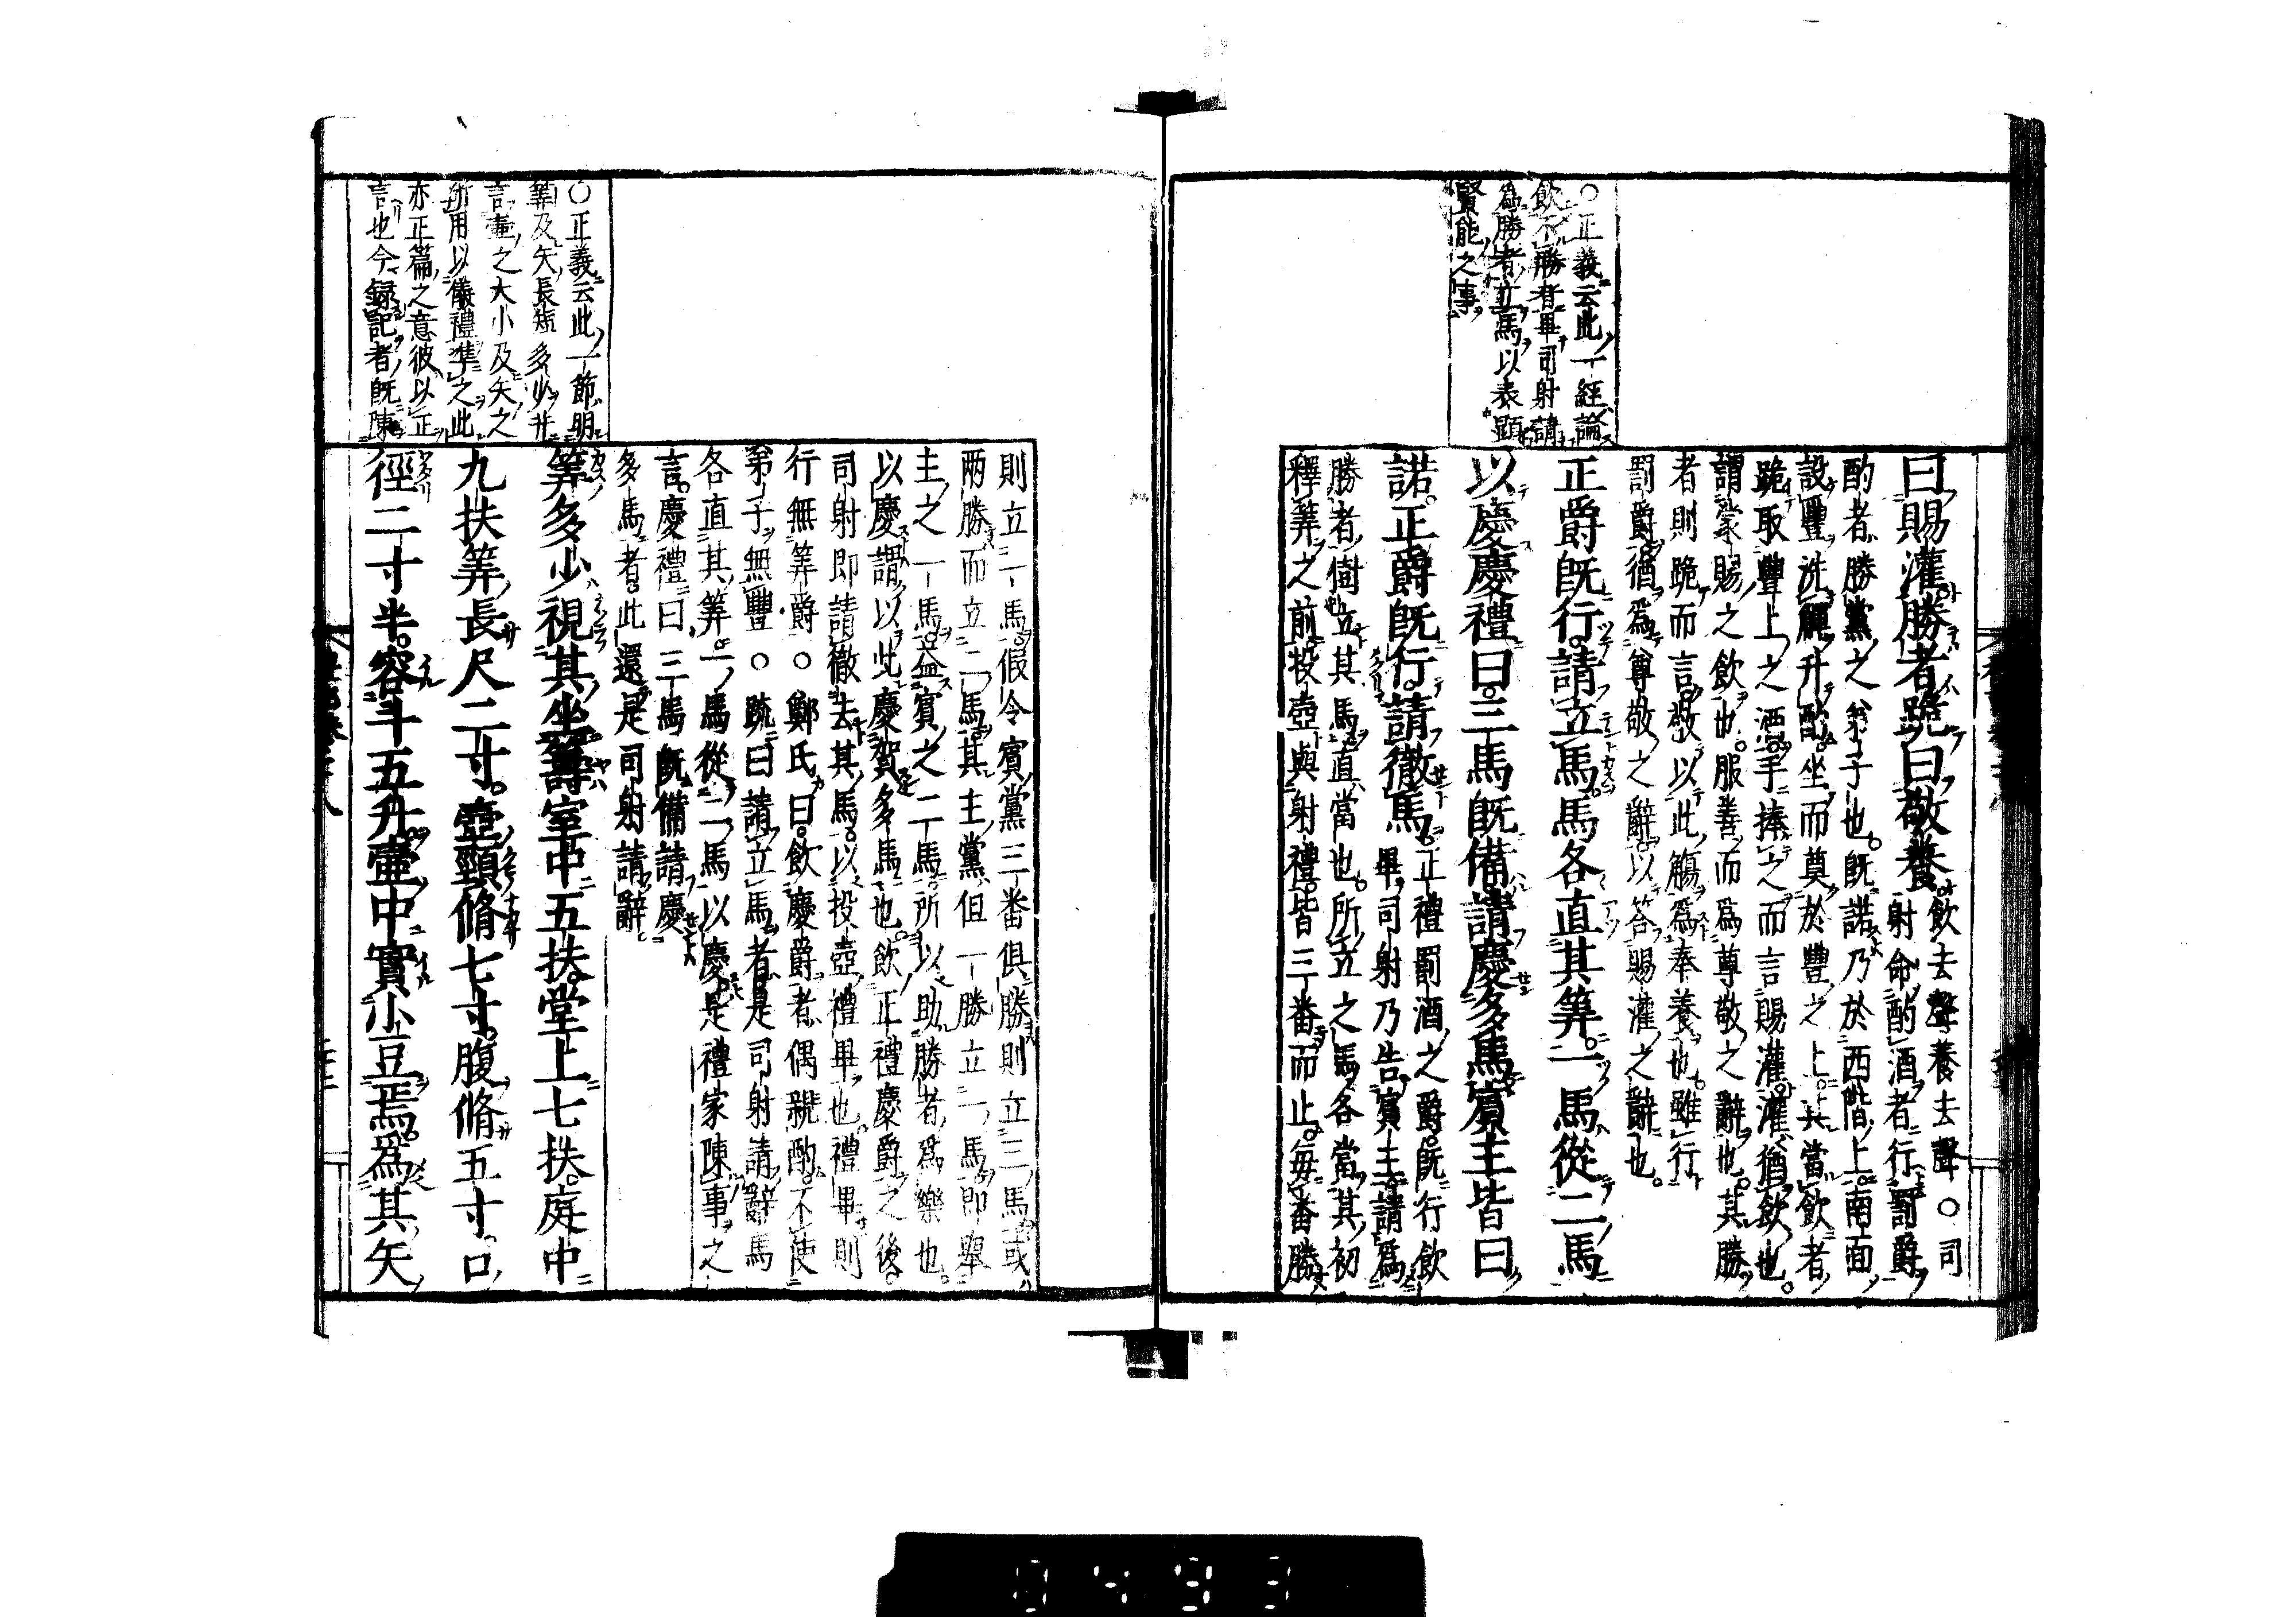 ○正義云此一經論
飲不勝者畢司射請
為勝者立馬以表顯
賢能之事
曰賜灌勝者跪曰敬養飲去聲養去聲○司
射命酌酒者行罰爵
酌者勝黨之弟子也既諾乃於西階上南面
設豐洗觶升酌坐而奠於豐之上其當飲者
跪取豐上之酒手捧之而言賜灌灌猶飲也
謂蒙賜之飲也服善而為尊敬之辭也其勝
者則跪而言敬以此觴為奉養也雖行
罰爵猶為尊敬之辭以答賜灌之辭也
正爵既行請立馬馬各直其筭一馬從二馬
以慶慶禮曰三馬既備請慶多馬賓主皆曰
諾正爵既行請徹馬正禮罰酒之爵既行飲
畢司射乃告賓主請為
勝者樹立其馬直當也所立之馬各當其初
釋筭之前投壺與射禮皆三番而止每番勝
則立一馬假令賓黨三番俱勝則立三馬或
兩勝而立二馬其主黨但一勝立一馬即舉
主之一馬益賓之二馬所以助勝者為樂也
以慶謂以此慶賀多馬也飲正禮慶爵之後
司射即請徹去其馬以投壺禮畢也禮畢則
行無筭爵○鄭氏曰飲慶爵者偶親酌不使
弟子無豐○疏曰請立馬者是司射請辭馬
各直其筭一馬從二馬以慶是禮家陳事之
言慶禮曰三馬既備請慶
多馬者此還是司射請辭
○正義云此一節明
筭及矢長短多少幷
言壺之大小及矢之
所用以儀禮準之此
亦正篇之意彼以正
言也今録記者既陳
筭多少視其坐籌室中五扶堂上七扶庭中
九扶筭長尺二寸壺頸脩七寸腹脩五寸口
徑二寸半容斗五升壺中實小豆焉為其矢
0493